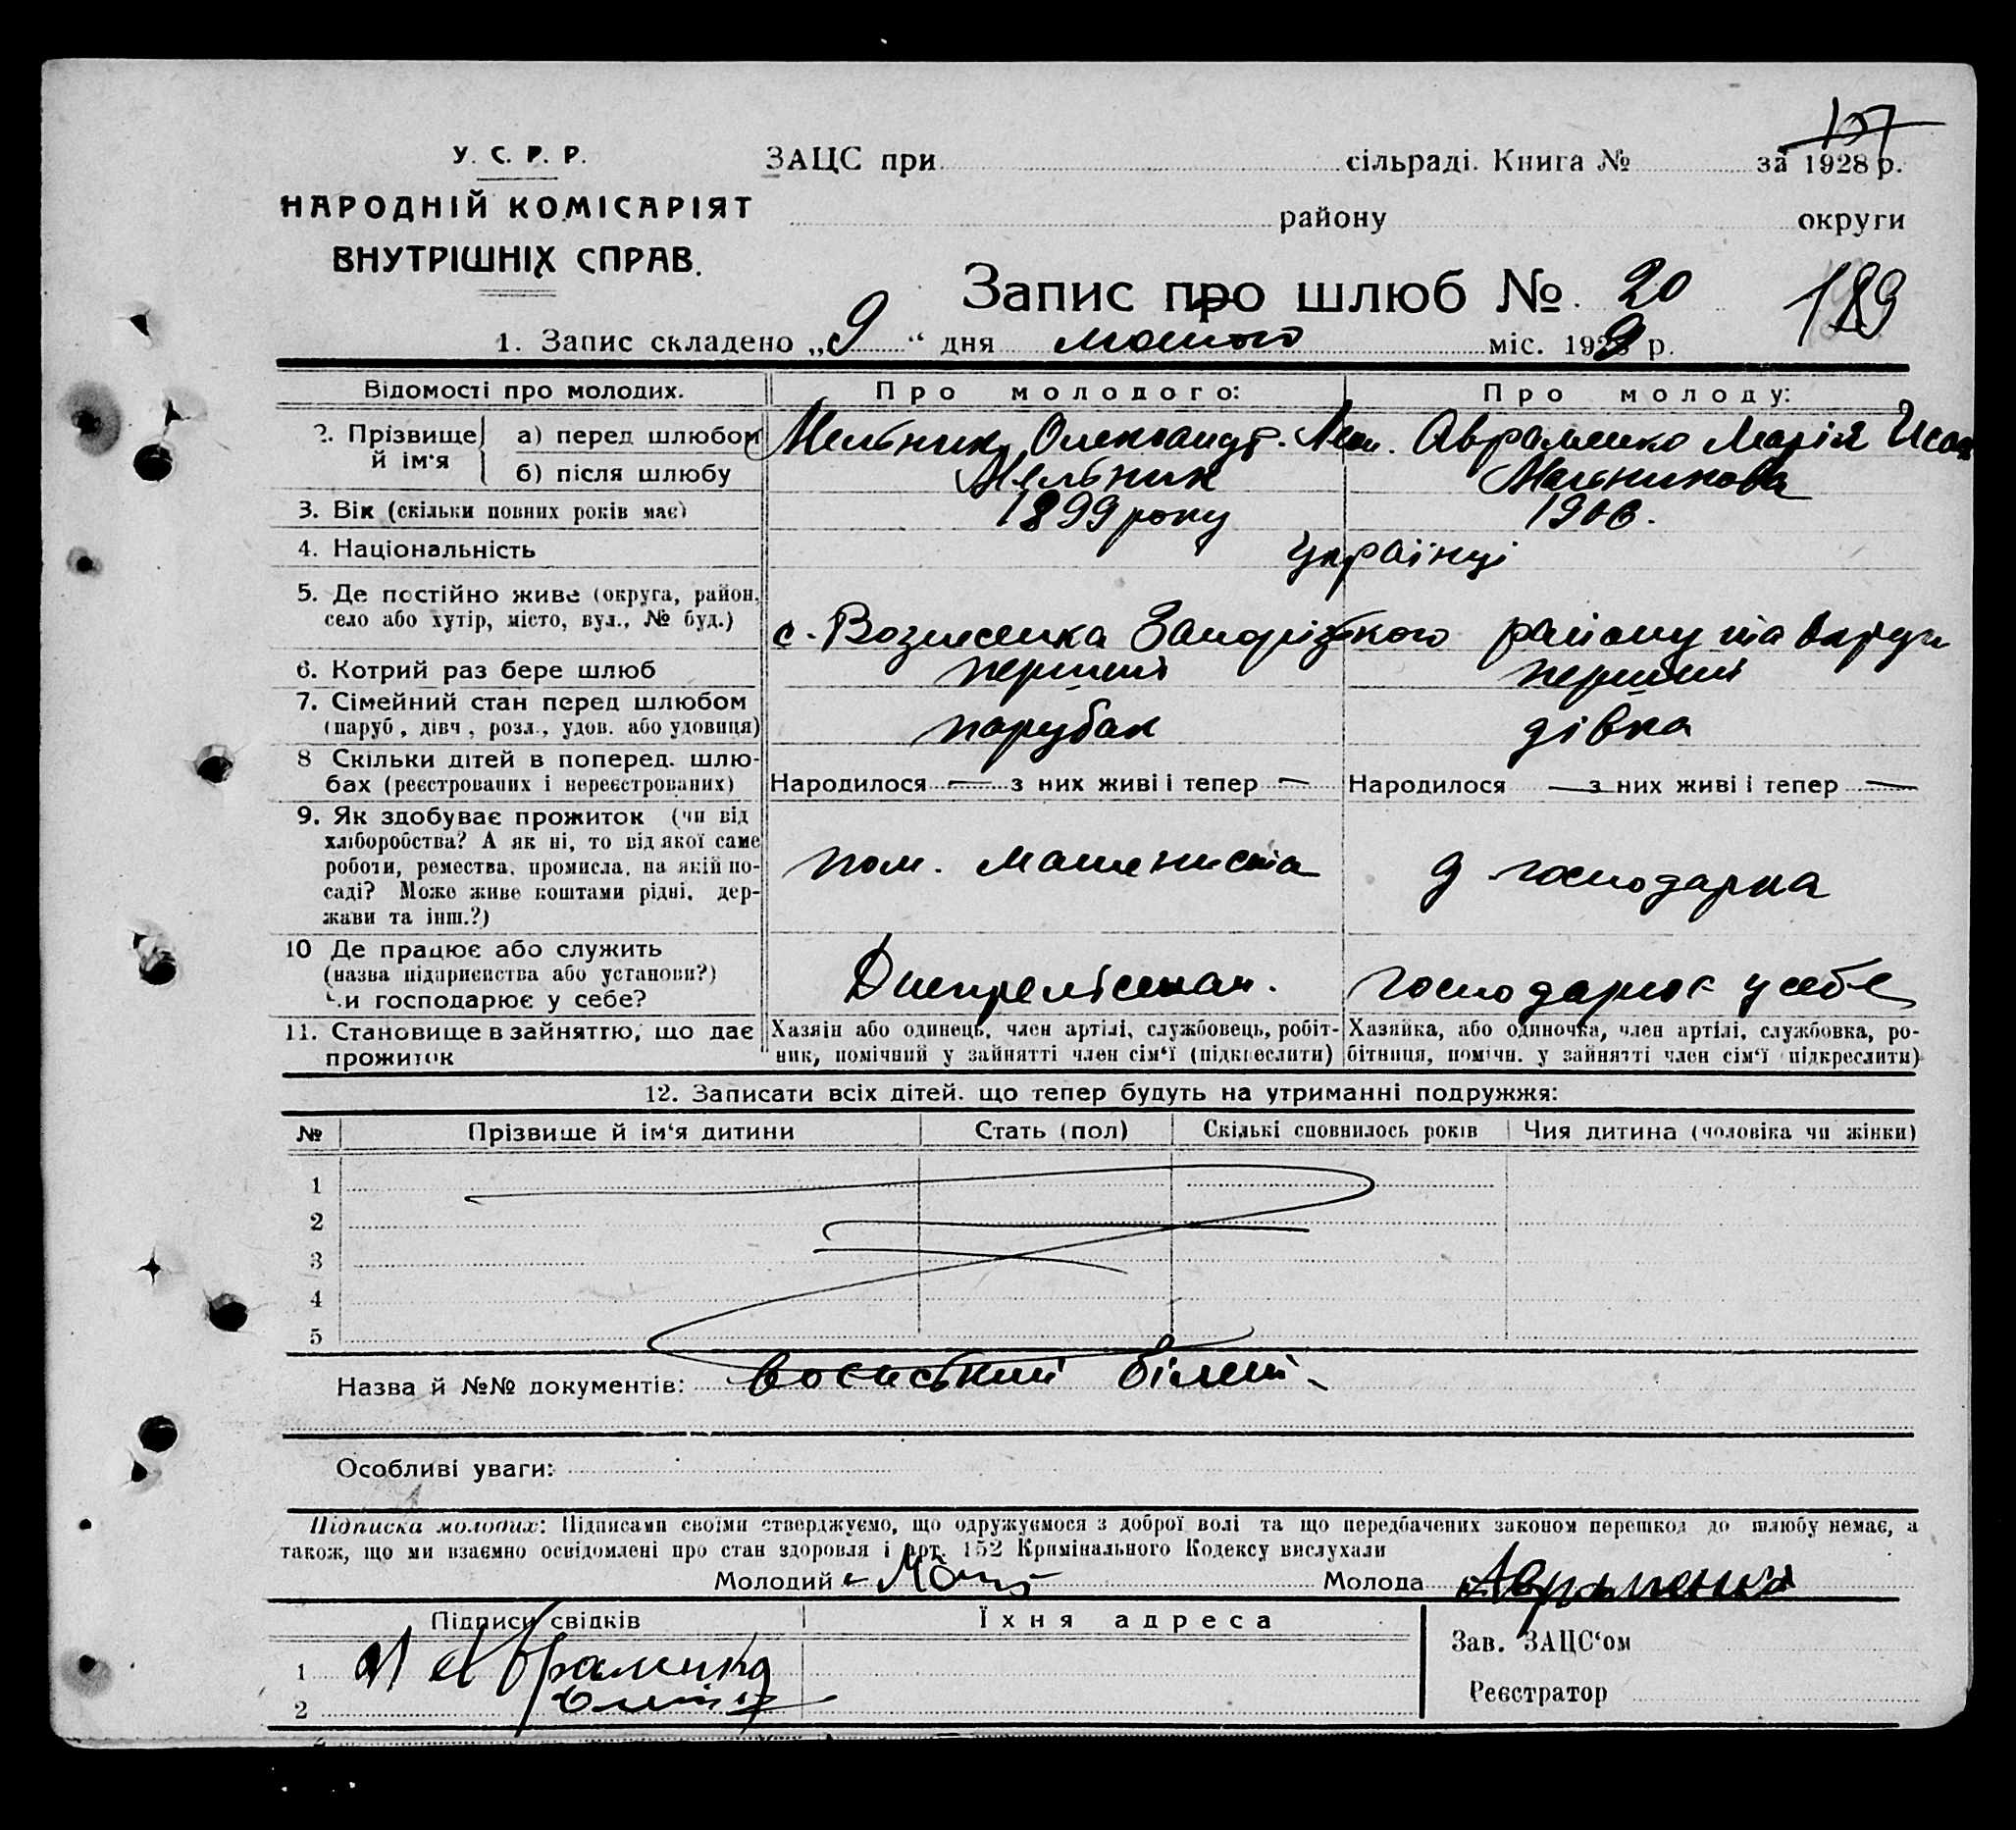 107
У. С. Р. Р.
НАРОДНІЙ КОМІСАРІЯТ
ВНУТРІШНІХ СПРАВ.
ЗАЦС при сільраді. Книга № за 1928 р.
району округи
Запис про шлюб № 20 189
1. Запис складено „9“ дня лютого міс. 1929 р.
Відомості про молодих. Про молодого: Про молоду:
2. Прізвище й ім'я а) перед шлюбом Мельник Олександр. Авраменко Марія Исак
б) після шлюбу Мельник Мельникова
3. Вік (скільки повних років має) 1899 року 1906.
4. Національність Українці
5. Де постійно живе (округа, район,
село або хутір, місто, вул., № буд.) с. Вознесенка Запоріжського району та округи
6. Котрий раз бере шлюб перший перший
7. Сімейний стан перед шлюбом
(паруб, дівч, розл., удов. або удовиця) парубак дівка
8 Скільки дітей в поперед. шлю-
бах (реєстрованих і нереєстрованих) Народилося — з них живі і тепер — Народилося — з них живі і тепер —
9. Як здобуває прожиток (чи від
хліборобства? А як ні, то від якої саме
роботи, ремества, промисла, на якій по-
саді? Може живе коштами рідні, дер-
жави та інш.?) пом. машениста д господарка
10 Де працює або служить
(назва підприємства або установи?)
Чи господарює у себе? господарює у себе
11. Становище в зайняттю, що дає
прожиток
Хазяїн або одинець, член артілі, службовець, робіт-
ник, помічний у зайнятті член сім'ї (підкреслити)
Хазяйка, або одиночка, член артілі, службовка, ро-
бітниця, помічн. у зайнятті член сім'ї підкреслити)
12. Записати всіх дітей. що тепер будуть на утриманні подружжя:
№ Прізвище й ім'я дитини Стать (пол) Скількі сповнилось років Чия дитина (чоловіка чи жінки)
1
2
3
4
5
Назва й №№ документів: воєнський білет
Особливі уваги:
Підписка молодих: Підписами своїми стверджуємо, що одружуємося з доброї волі та що передбачених законом перешкод до шлюбу немає, а
також, що ми взаємно освідомлені про стан здоровля і арт. 152 Кримінального Кодексу вислухали
Молодий Молода Авраменко
Підписи свідків Їхня адреса
Зав. ЗАЦС'ом
1 Авраменко
Реєстратор
2